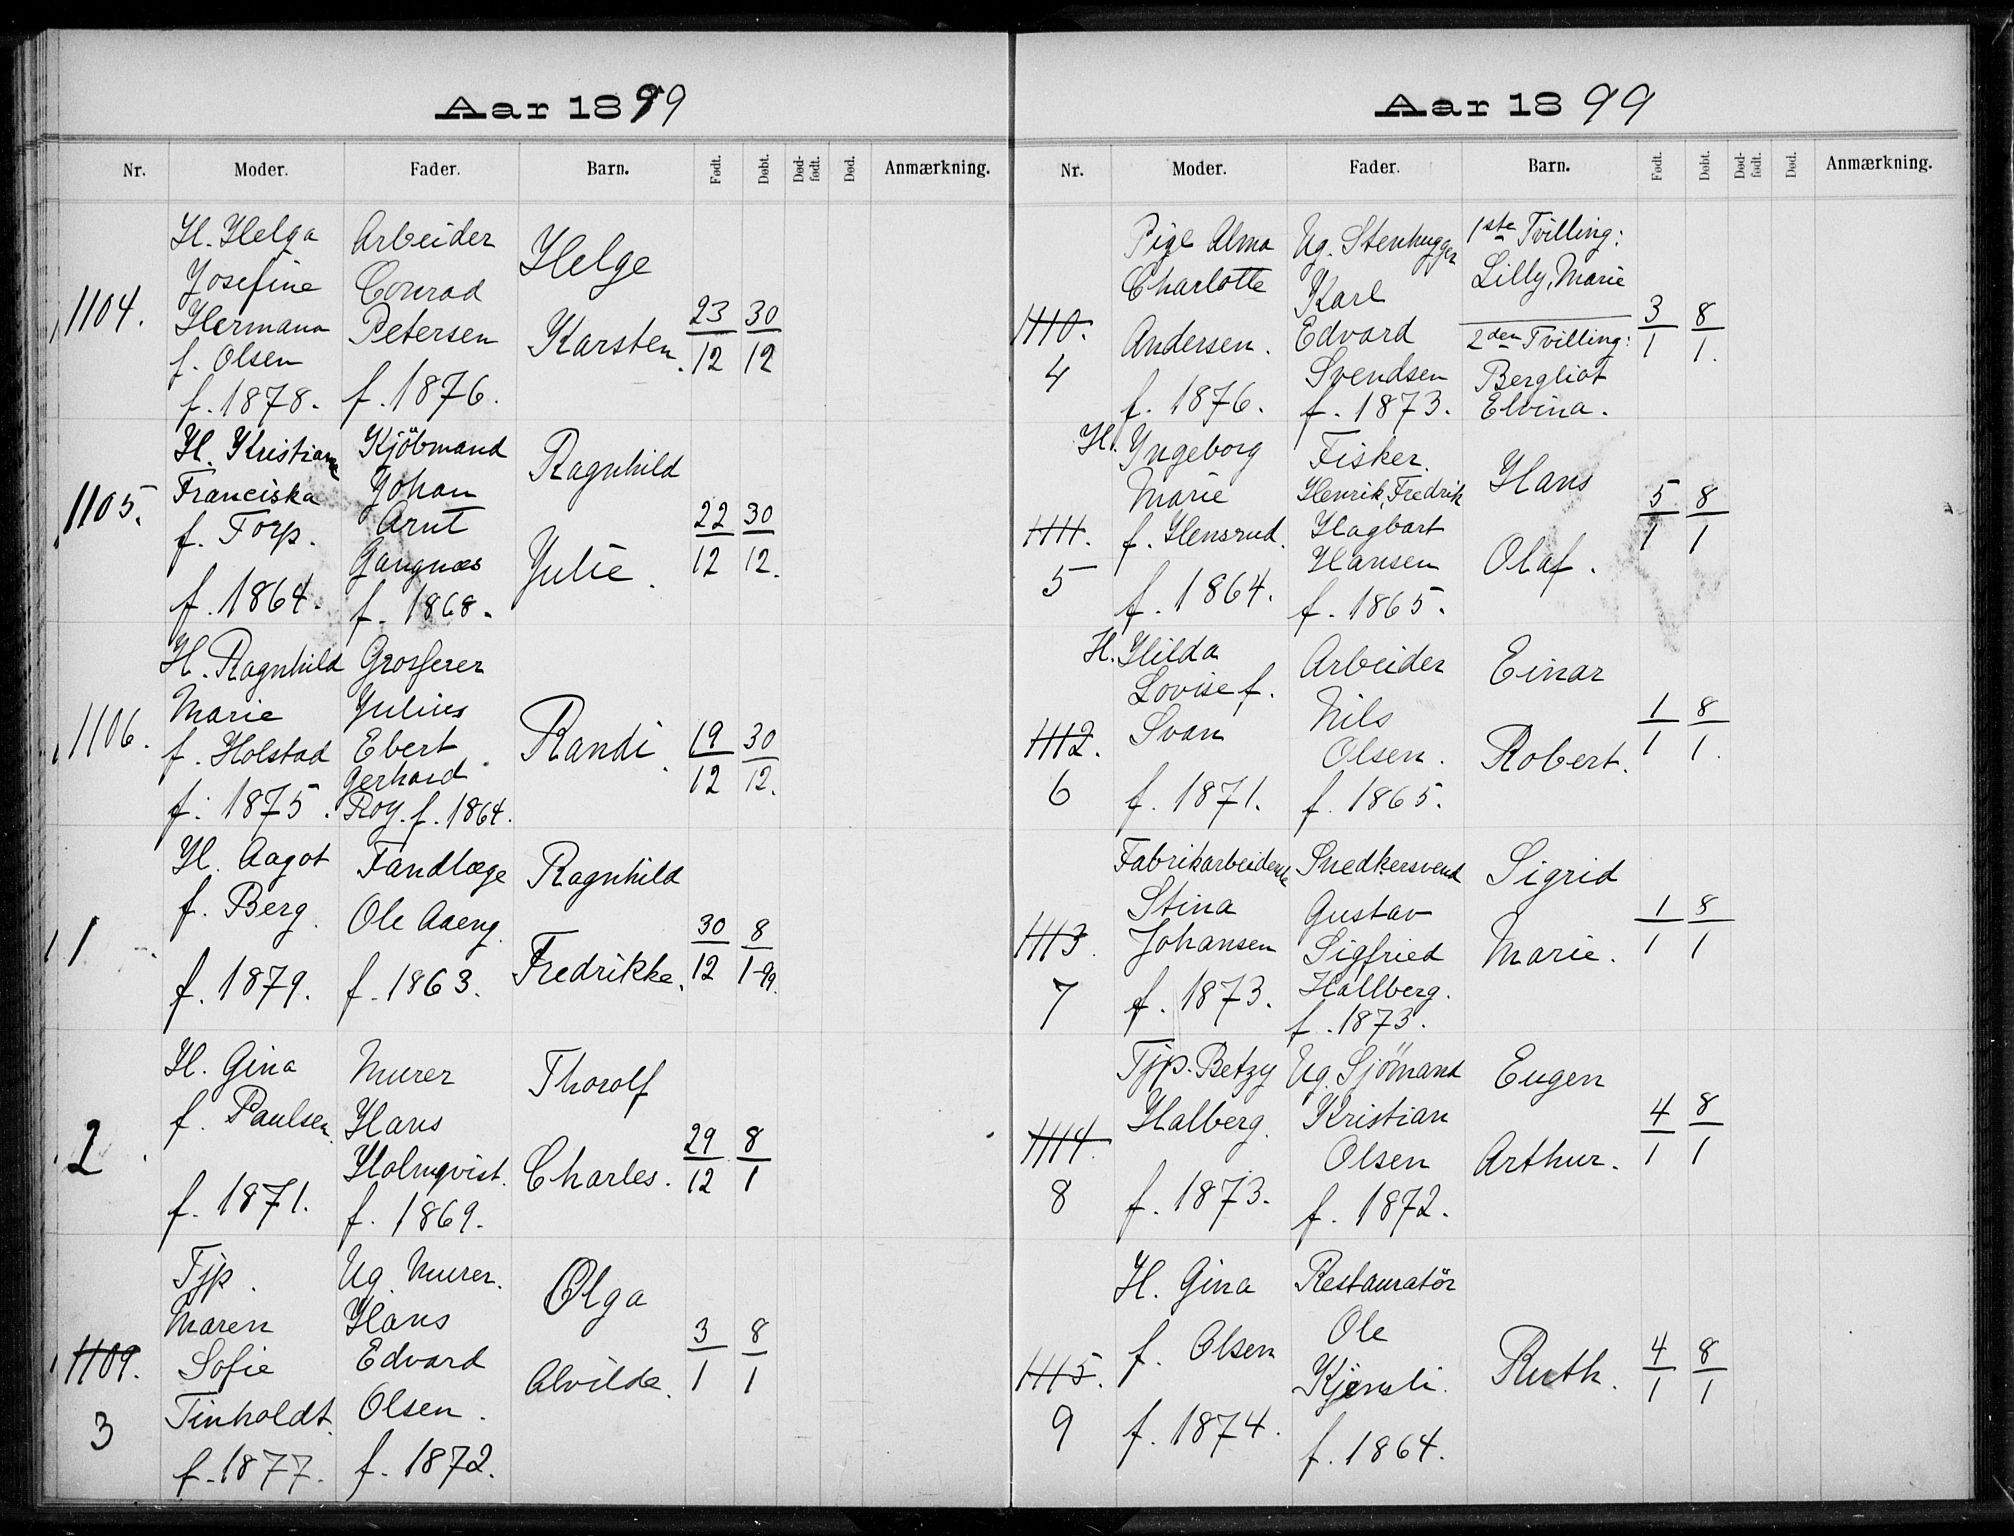 Aar 1899
Nr. Moder. Fader. Barn. Født. Døbt. Død-født. Død. Anmærkning.
1104.
H. Helga
Josefine
Hermana
f. Olsen
f. 1878.
Arbeider
Conrad
Petersen
f. 1876.
Helge
Karsten.
23/12 30/12
1105.
H. Kristiane
Franciska
f. Torp.
f. 1864.
Kjöbmand
Johan
Arnt
Gangnæs
f. 1868.
Ragnhild
Julie.
22/12 30/12.
1106.
H. Ragnhild
Marie
f. Holstad
f. 1875.
Grosserer
Julius
Ebert
Gerhard
Roy. f. 1864.
Randi.
19/12 30/12.
1
H. Aagot
f. Berg.
f. 1879.
Tandlæge
Ole Aaeng.
f. 1863.
Ragnhild
Fredrikke.
30/12 8/1-99.
2
H. Gina
f. Paulsen.
f. 1871.
Murer
Hans
Holmqvist.
f. 1869.
Thorolf
Charles.
29/12 8/1
1109.
3
Tjp.
Maren
Sofie
Tinholdt.
f. 1877.
Ug. Murer.
Hans
Edvard
Olsen.
f. 1872.
Olga
Alvilde.
3/1 8/1
Aar 1899
Nr. Moder. Fader. Barn. Født. Døbt. Død-født. Død. Anmærkning.
1110.
4
Pige Alma
Charlotte
Andersen.
f. 1876.
Ug. Stenhugger
Karl
Edvard
Svendsen
f. 1873.
1ste Tvilling:
Lilly, Marie
2den Tvilling:
Bergliot
Elvina.
3/1 8/1.
1111.
5
H. Ingeborg
Marie
f. Hensrud.
f. 1864.
Fisker.
Henrik, Fredrik
Hagbart
Hansen
f. 1865.
Hans
Olaf.
5/1 8/1
1112.
6
H. Hilda
Lovise f.
Svan
f. 1871.
Arbeider
Nils
Olsen.
f. 1865.
Einar
Robert.
1/1 8/1.
1113.
7
Fabrikarbeiderske
Stina
Johansen
f. 1873.
Snedkersvend
Gustav
Sigfried
Hallberg.
f. 1873.
Sigrid
Marie.
1/1 8/1
1114.
8
Tjp. Betzy
Halberg.
f. 1873.
Ug. Sjömand
Kristian
Olsen
f. 1872.
Eugen
Arthur.
4/1 8/1
1115.
9
H. Gina
f. Olsen
f. 1874.
Restauratör
Ole
f. 1864.
Ruth.
4/1 8/1